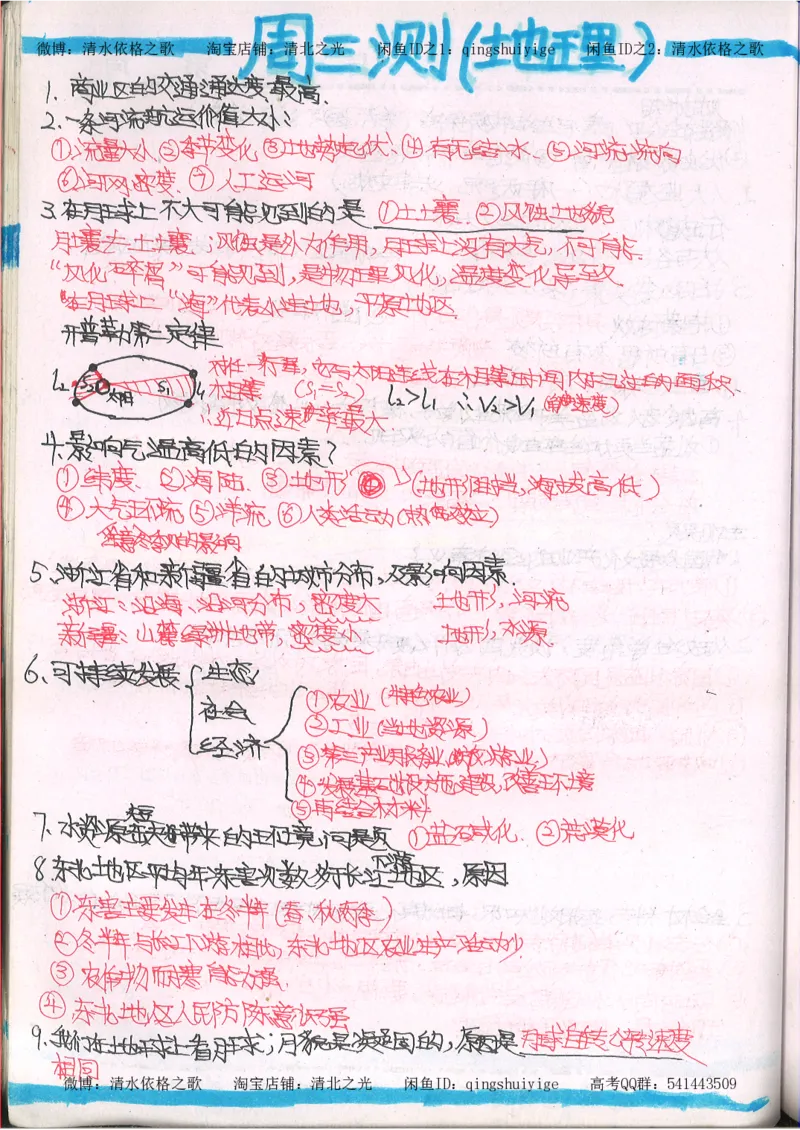 周三测(地理)
微博：清水依格之歌 淘宝店铺：清北之光 闲鱼ID之1：qingshuiyige 闲鱼ID之2：清水依格之歌
1. 商业区的交通通达度最高.
2. 一条河流航运价值大小:
①流量大小 ②季节变化 ③地势起伏 ④有无结冰 ⑤河流流向
⑥河网密度 ⑦人工运河
3. 在月球上不大可能见到的是 ①土壤 ②风蚀地貌
月壤≠土壤；风蚀是外力作用，月球上没有大气，不可能.
“风化碎屑”可能见到，是物理风化，温度变化导致
在月球上“海”代表小洼地，平原地区.
开普勒第二定律
L2 S2 太阳 S1 L1
对任一行星，它与太阳连线在相等时间内扫过的面积
相等 (S1=S2) L2>L1 ∴V2>V1
∴近日点速率最大
4. 影响气温高低的因素？
①纬度 ②海陆 ③地形 (地形阻挡，海拔高低)
④大气环流 ⑤洋流 ⑥人类活动(热岛效应)
注意冬季风的影响
5. 浙江省和新疆省的城市分布，及影响因素.
浙江：沿海、沿河分布，密度大 地形，河流
新疆：山麓绿洲地带，密度小 地形，水源
6. 可持续发展 生态
社会
经济
①农业(特色农业)
②工业(当地资源)
③第三产业服务业(旅游业)
④发展基础设施建设，改善环境
⑤再结合材料
7. 水资源短缺带来的环境问题 ①盐碱化 ②荒漠化
8. 东北地区平均年冻害次数少于长江下游地区，原因
①冻害主要发生在冬半年(春、秋两季)
②冬半年与长江下游相比，东北地区农业生产活动少
③农作物耐寒能力强.
④东北地区人民防冻意识强
9. 我们在地球上看月球；月貌是凝固的，原因是月球自转公转速度
相同
微博：清水依格之歌 淘宝店铺：清北之光 闲鱼ID：qingshuiyige 高考QQ群：541443509